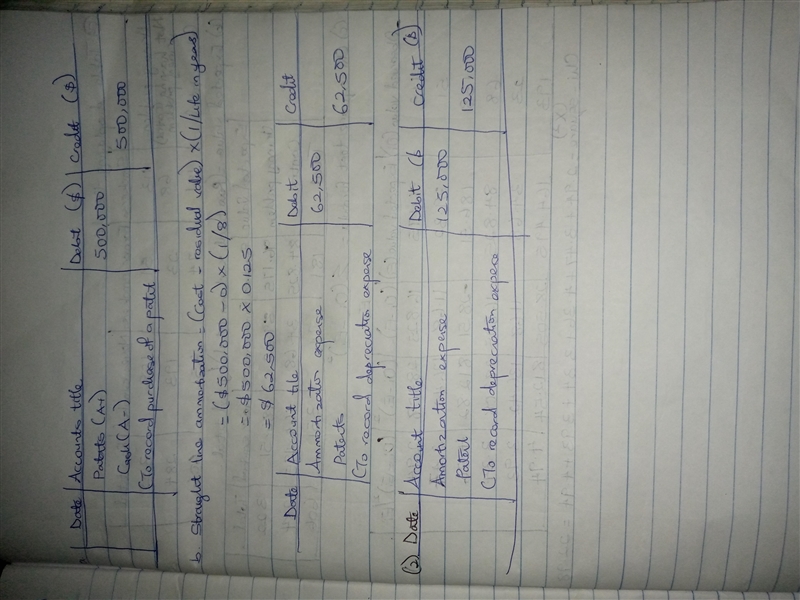 Date Accounts title Debit ($) Credit ($)
Patents (A+) 500,000
Cash (A-) 500,000
(To record purchase of a patent
b Straight line ammortization = (Cost - residual value) x (1/Life in years)
= ($500,000 - 0) x (1/8)
= $500,000 x 0.125
= $62,500
Date Account title Debit Credit
Ammortization expense 62,500
Patents 62,500
(To record depreciation expense
(2) Date Account title Debit ($ Credit ($)
Amortization expense 125,000
Patent 125,000
(To record depreciation expence